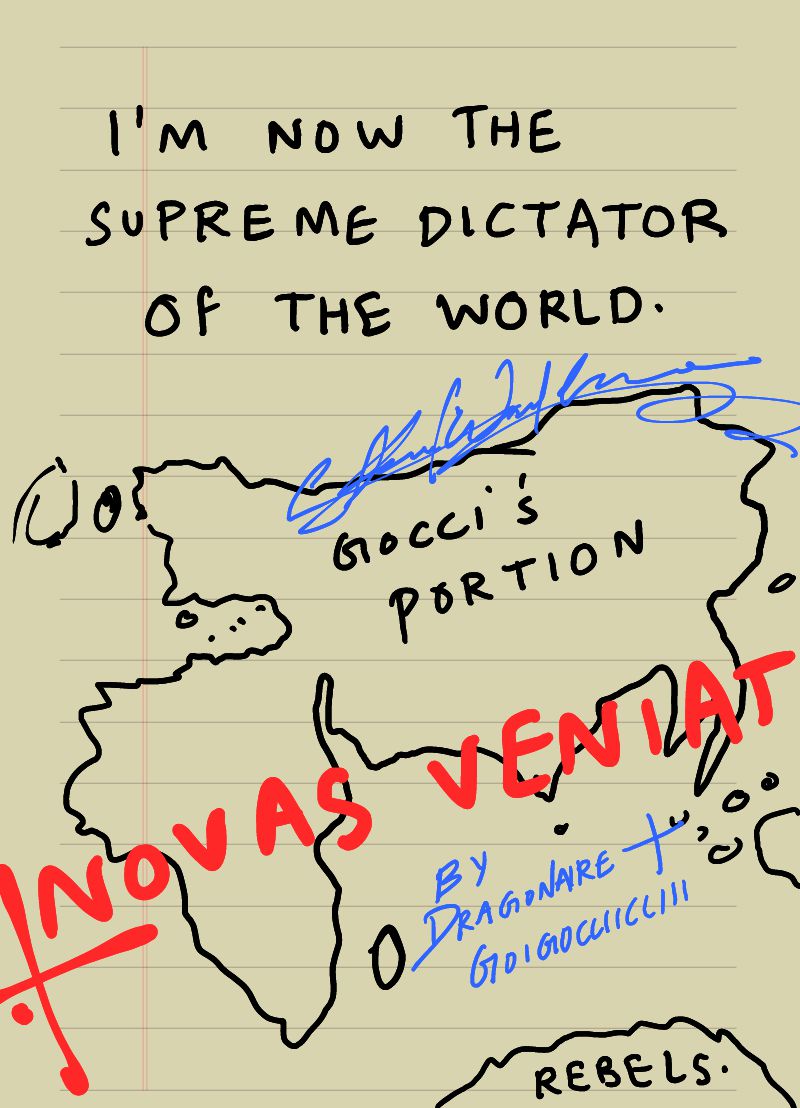 I'M NOW THE
SUPREME DICTATOR
OF THE WORLD.
GOCCI'S
PORTION
NOVAS VENIAT
BY
DRAGONAIRE
REBELS.